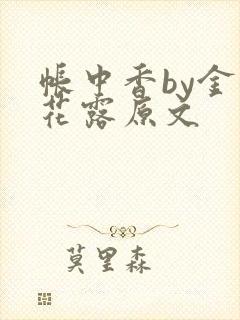 帐中香by金
花露原文
莫里森